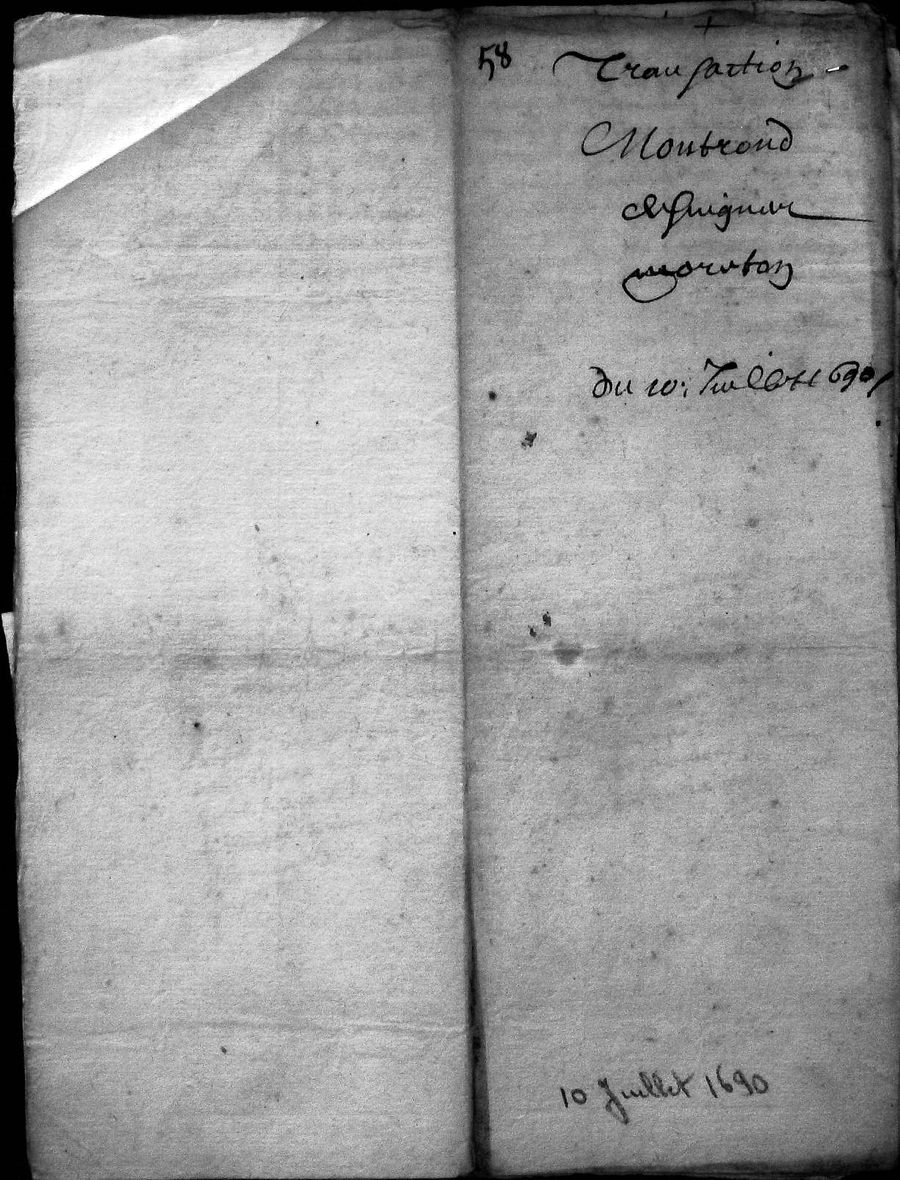 58
Transaction
Montrond
moreton
du 10: Juillet 1690
10 Juillet 1690